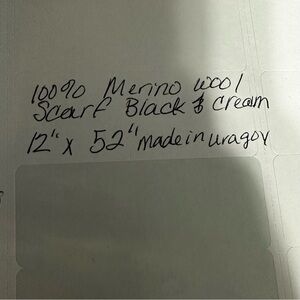 100% Merino wool
Scarf Black & Cream
12" x 52" made in uragoy